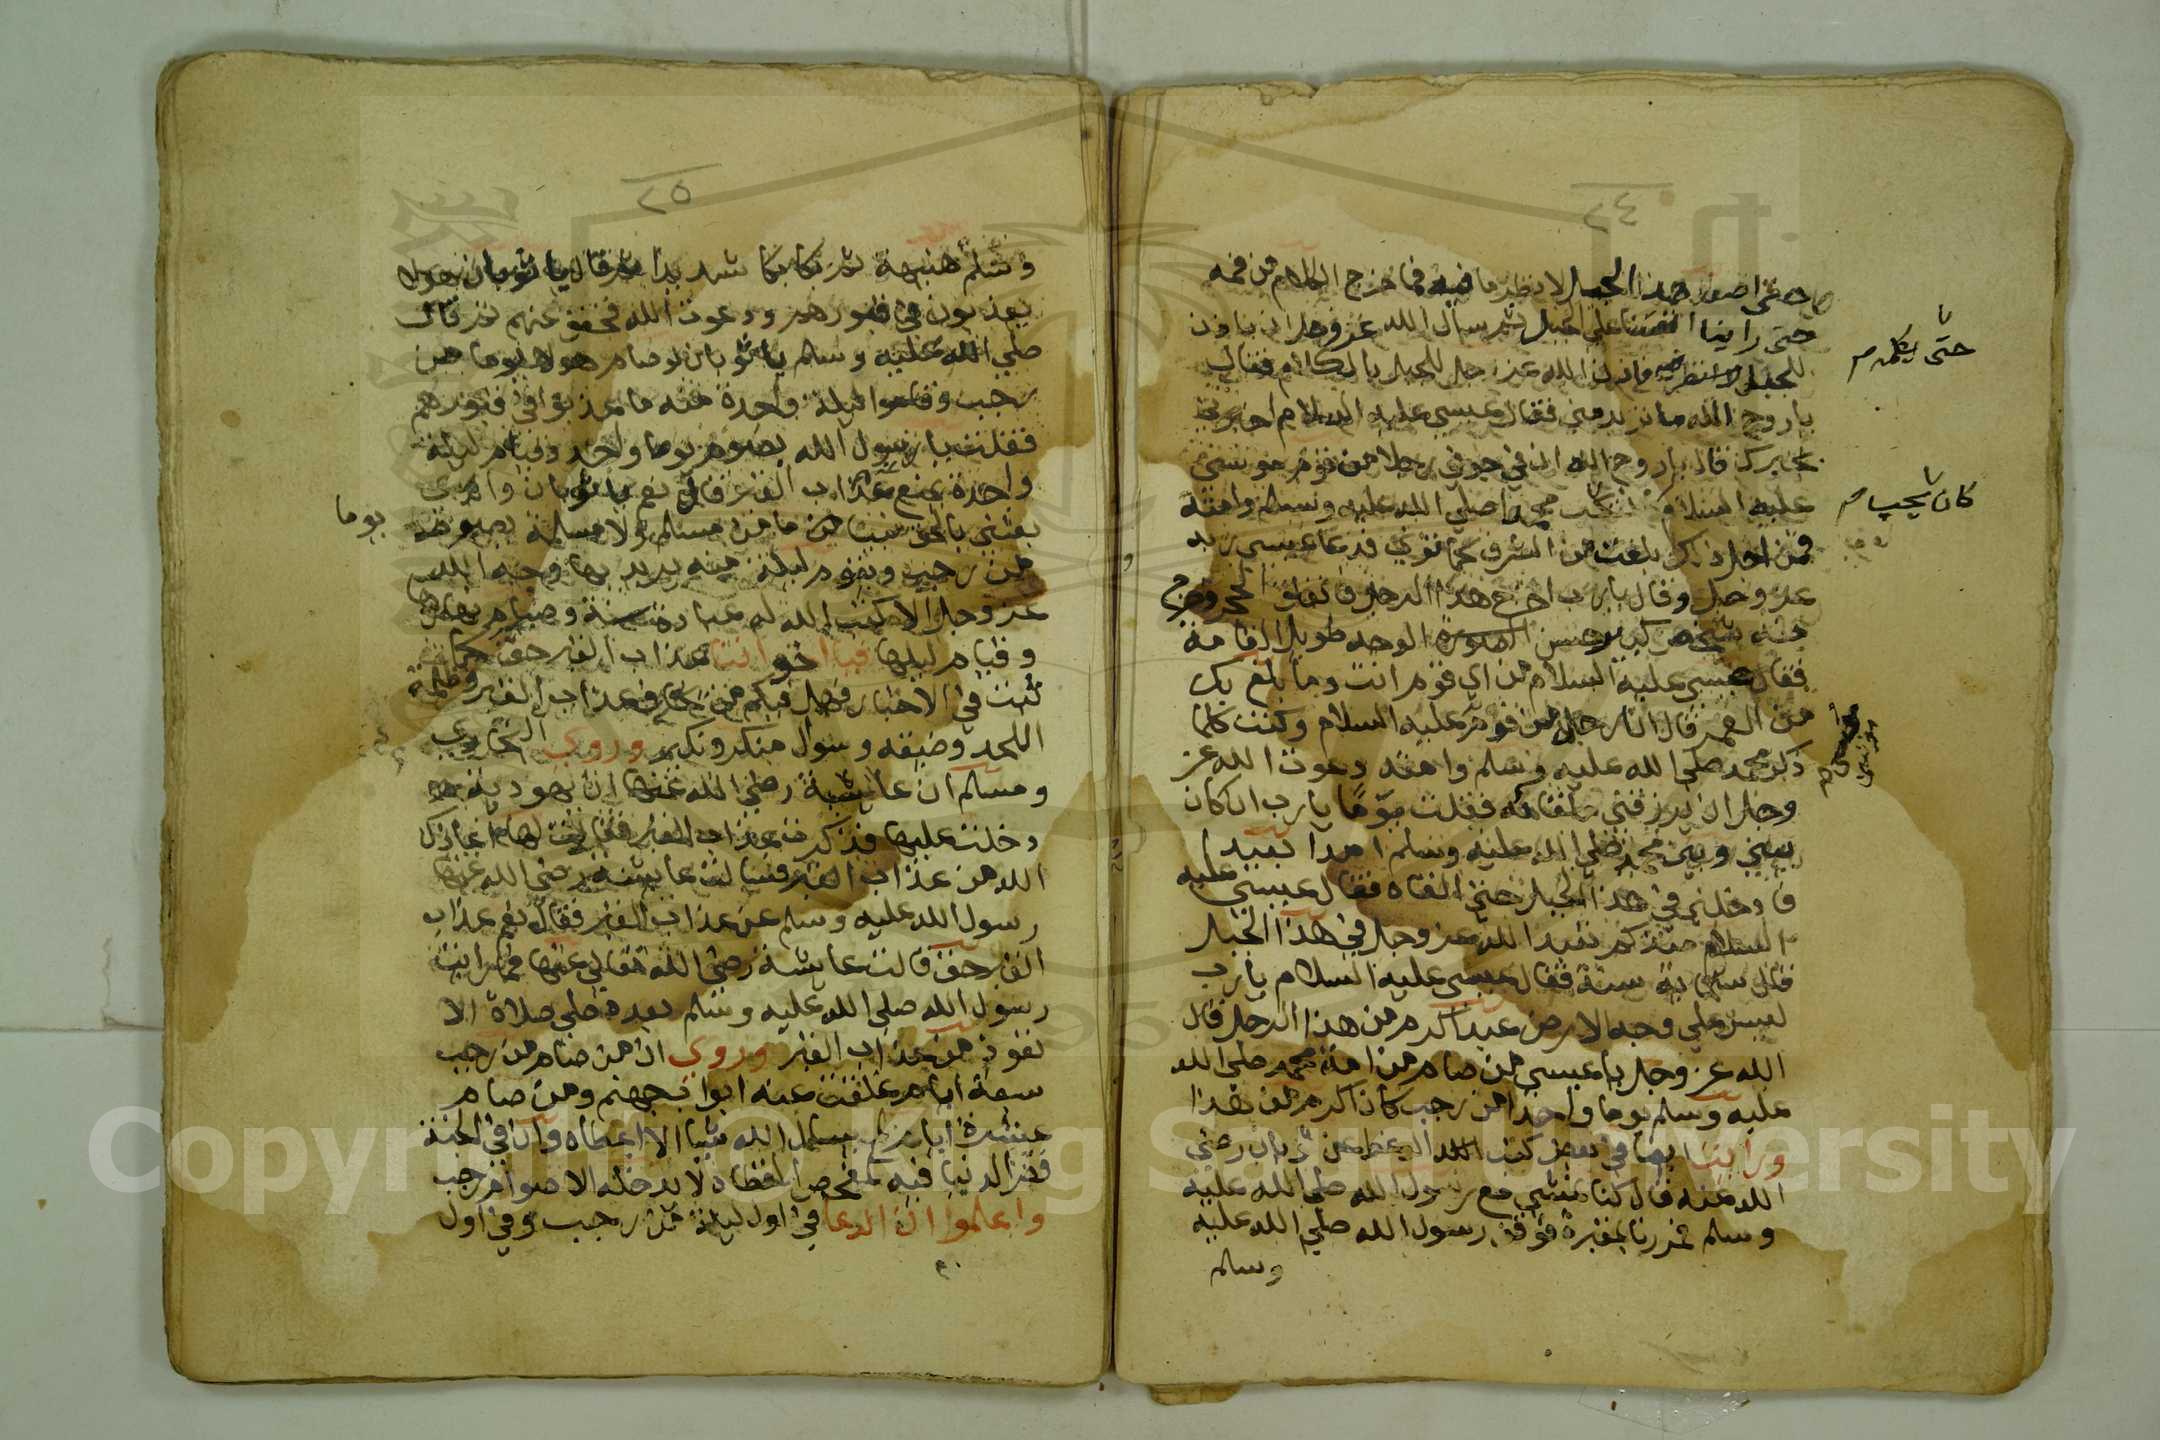 ٢٤
حتى اصعد هذا الجبل لانظر ما فيه فما خرج الكلام من فمه
حتى راينا انفسنا على الجبل ثم سال الله عز وجل ان ياذن
للجبل فاذن الله عز وجل للجبل بالكلام فقال
يا روح الله ما تريد مني فقال عيسى عليه السلام اخبرني
بخبرك قال يا روح الله ان في جوفي رجلا من قوم موسى
عليه السلام يحب محمدا صلى الله عليه وسلم وامته
فمن اجل ذلك بلغت من الشرف كما ترى فدعا عيسى ربه
عز وجل وقال يا رب اخرج هذا الرجل فانفلق الحجر وخرج
منه شخص حسن الوجه طويل القامة
فقال عيسى عليه السلام من اي قوم انت وما بلغ بك
من العمر قال انا رجل من قوم عليه السلام وكنت كلما
ذكر محمد صلى الله عليه وسلم وامته دعوت الله عز
وجل ان يرزقني فقلت يوما يا رب ان كان
بيني وبين محمد صلى الله عليه وسلم امدا بعيدا
فادخلني في هذا الجبل حتى القاه فقال عيسى عليه
السلام منذ كم تعبد الله عز وجل في هذا الجبل
قال ستماية سنة فقال عيسى عليه السلام يا رب
ليس على وجه الارض عبد اكرم من هذا الرجل قال
الله عز وجل يا عيسى من صام من امة محمد صلى الله
عليه وسلم يوما واحدا من رجب كان اكرم من هذا
ورايت ايضا في بعض كتب الوعظ عن ثوبان رضي
الله عنه قال كنا نمشي مع رسول الله صلى الله عليه
وسلم فمررنا بمقبرة فوقف رسول الله صلى الله عليه
وسلم
حتى يكلم
كان يحب
٢٥
وسلم هنيهة ثم بكا بكا شديدا ثم قال يا ثوبان هولا
يعذبون في قبورهم ودعوت الله فخفف عنهم ثم قال
صلى الله عليه وسلم يا ثوبان لو صام هولا يوما من
رجب وقاموا ليلة واحدة منه ما عذبوا في قبورهم
فقلت يا رسول الله بصوم يوما واحد وقيام ليلة
واحدة يمنع عذاب القبر قال نعم يا ثوبان والذي
بعثني بالحق نبيا ما من مسلم ولا مسلمة يصوم
يوما
من رجب ويقوم ليلة منه يريد بها وجه الله
عز وجل الا كتب الله له عبادة سنة وصيام نهارها
وقيام ليلها فيا اخواننا عذاب القبر حق كما
ثبت في الاخبار فهل فيكم من عذاب القبر وظلمة
اللحد وضيقه وسوال منكر ونكير وروى البخاري
ومسلم ان عايشة رضي الله عنها ان يهودية
دخلت عليها فذكرت عذاب القبر فقالت لها اعاذك
الله من عذاب القبر فسالت عايشة رضي الله عنها
رسول الله عليه وسلم عن عذاب القبر فقال نعم عذاب
القبر حق قالت عايشة رضي الله تعالى عنها فما رايت
رسول الله صلى الله عليه وسلم بعد صلى صلاة الا
تعوذ من عذاب القبر وروى ان من صام من رجب
سبعة ايام غلقت عنه ابواب جهنم ومن صام
عشرة ايام لم يسال الله شيا الا اعطاه وان في الجنة
قصر الدنيا فيه كمفحص القطاه لا يدخله الا صوام رجب
واعلموا ان الدعا في اول ليلة من رجب وفي اول
Copyright © King Saud University